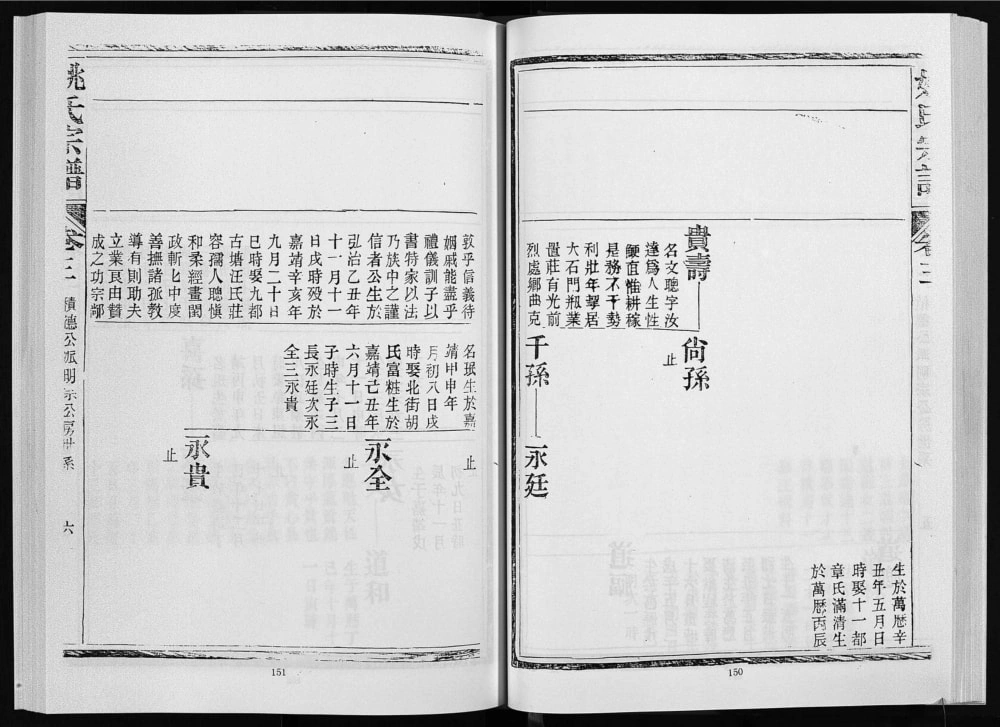 生於萬曆辛
丑年五月日
時娶十一都
章氏滿清生
於萬曆丙辰
貴壽
名文聰字汝
達爲人生性
鯁直惟耕稼
是務不干勢
利壯年挈居
大石門瓶業
置莊有光前
烈處鄉曲克
尙孫
止
千孫
永廷
150
敦乎信義待
姻戚能盡乎
禮儀訓子以
書特家以法
乃族中之謹
信者公生於
弘治乙丑年
十一月十一
日戌時殁於
嘉靖辛亥年
九月二十日
巳時娶九都
古塘汪氏莊
容孺人聰愼
和柔經畫閫
政斬匕中度
善撫諸孤教
導有則助夫
立業良由賛
成之功宗鄰
名珉生於嘉
靖甲申年
月初八日戌
時娶北街胡
氏富粧生於
嘉靖己丑年
六月十一日
子時生子三
長永廷次永
全三永貴
止
永全
止
永貴
止
姚氏宗譜
卷三
積德公派明宗公房世系
六
151